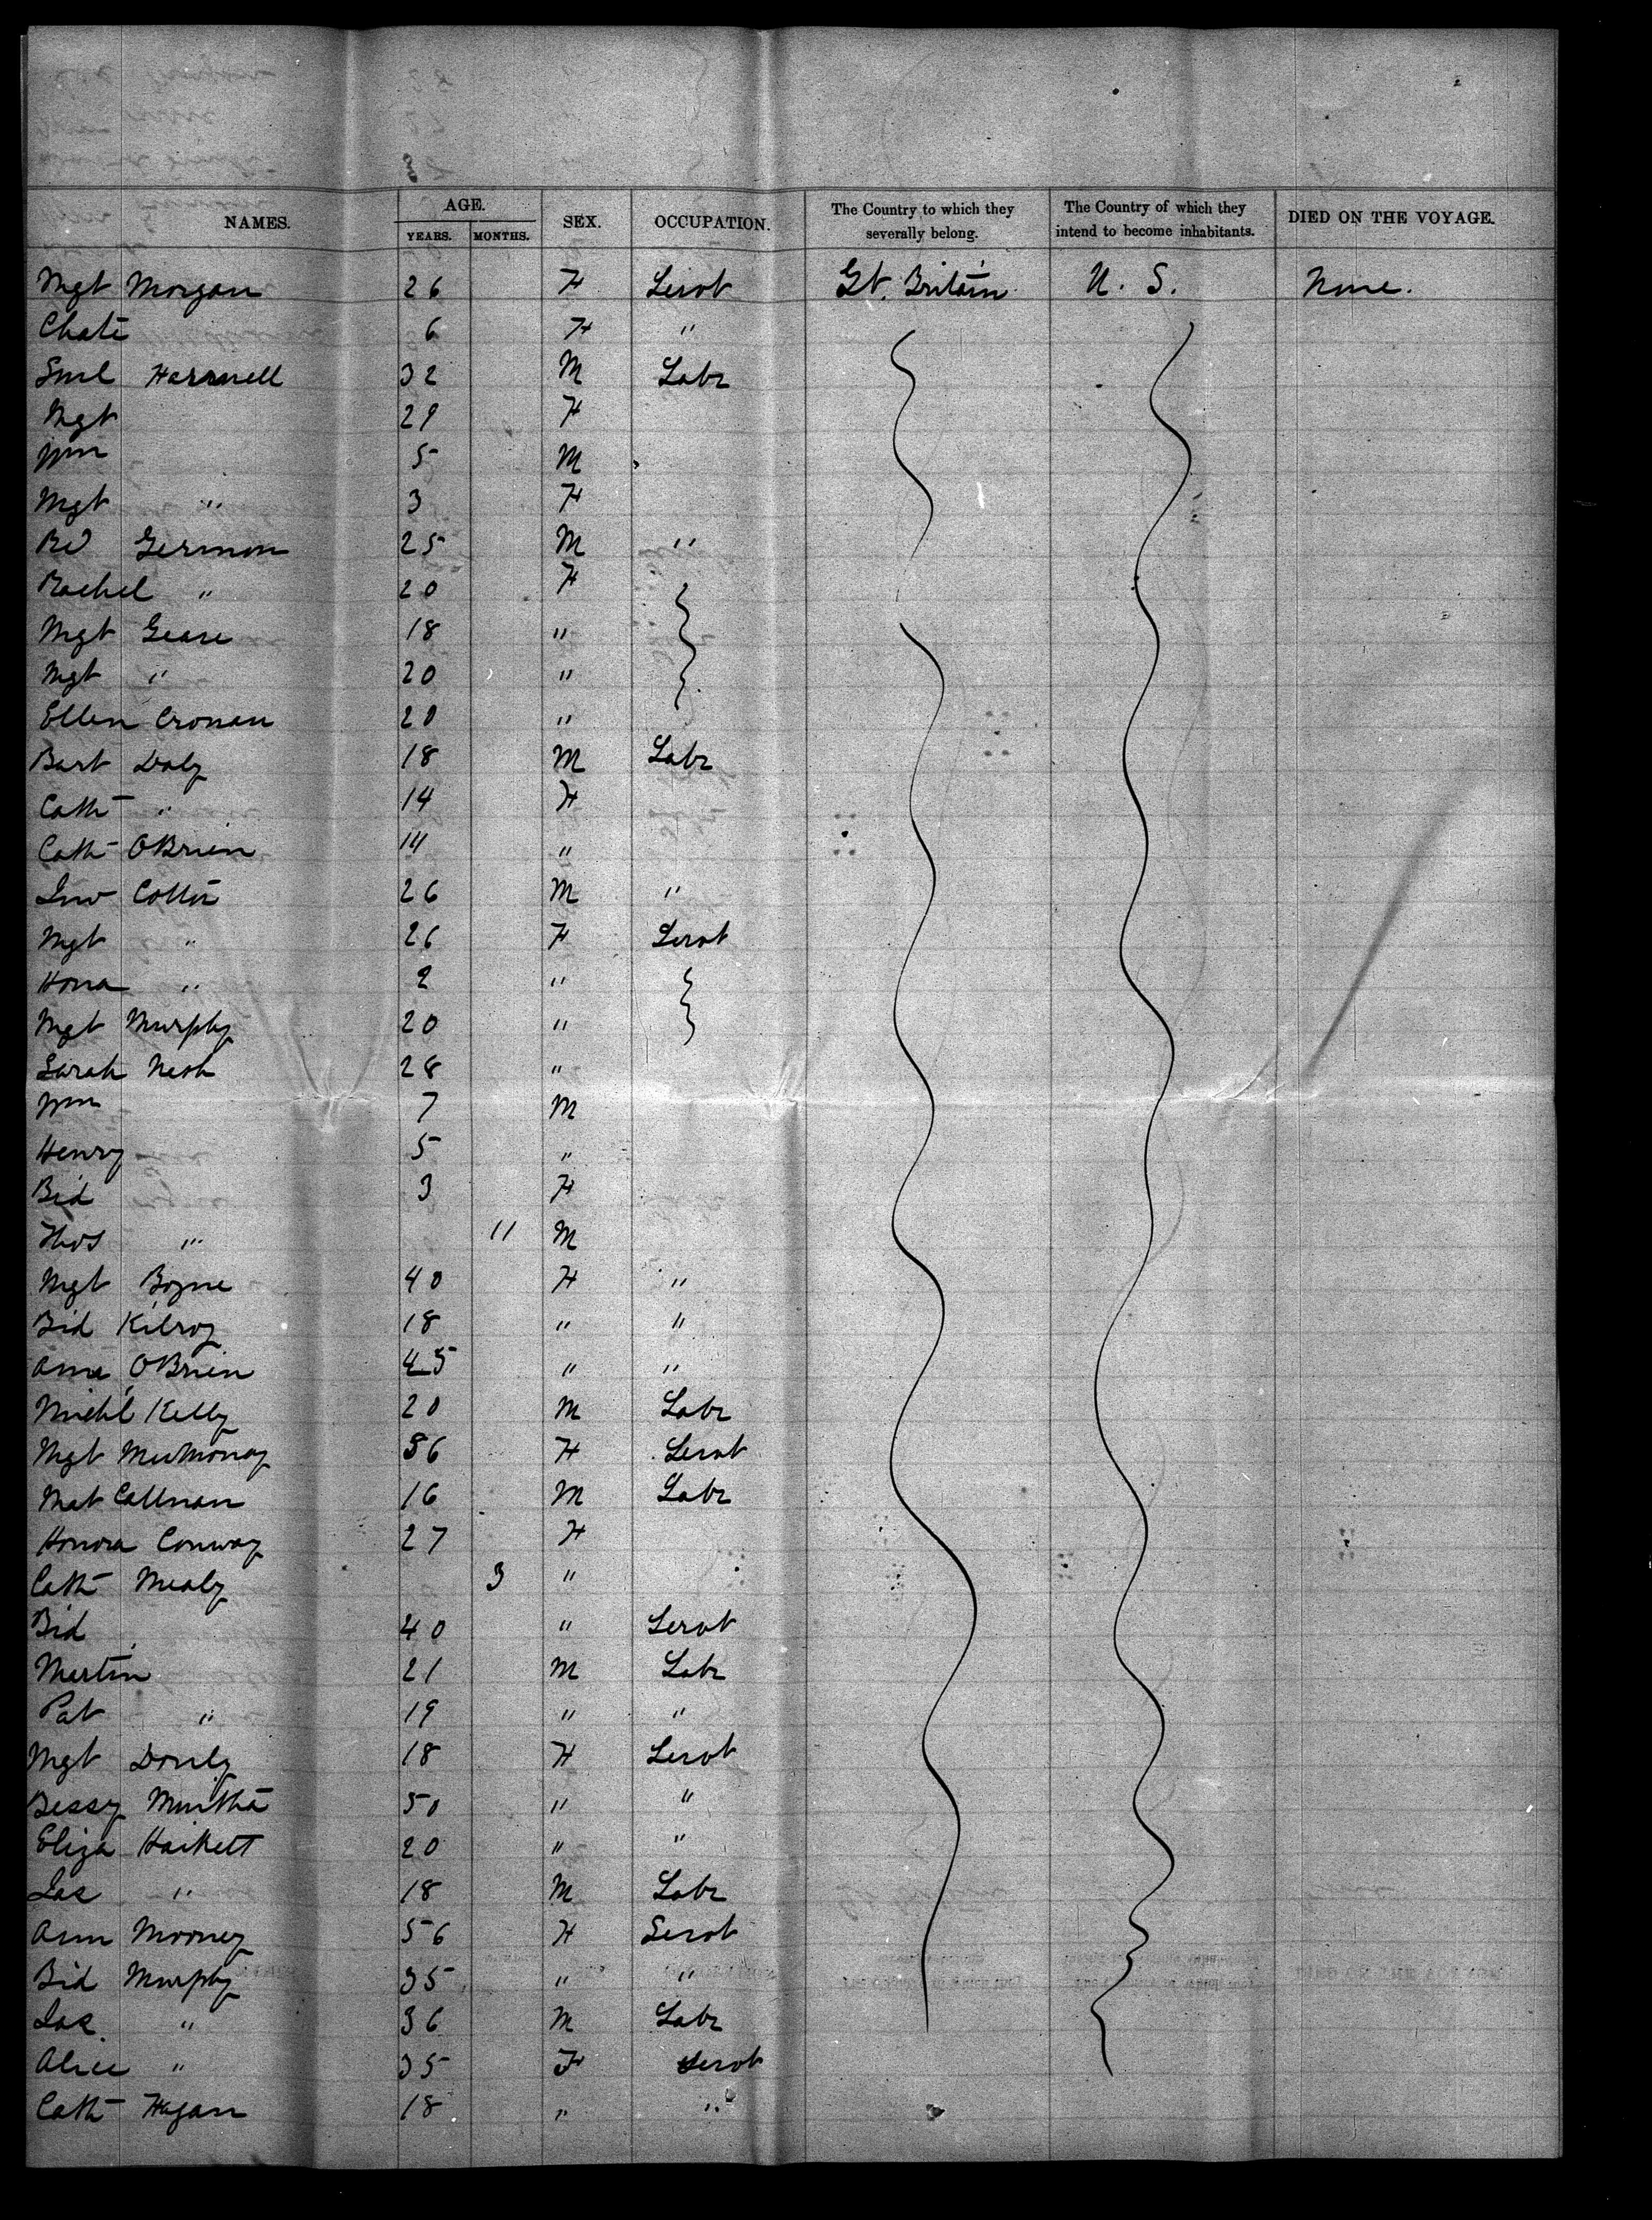 NAMES. AGE. YEARS. MONTHS. SEX. OCCUPATION. The Country to which they severally belong. The Country of which they intend to become inhabitants. DIED ON THE VOYAGE.
Mgt Morgan 26 F Servt Gt. Britain U. S. None.
6 F "
32 M Labr
Mgt 29 F
Wm 5 M
Mgt " 3 F
25 M "
Rachel " 20 F
Mgt 18 "
Mgt " 20 "
Ellen Cronan 20 "
Bart Daly 18 M Labr
Cath " 14 F
Cath OBrien 14 "
Jno 26 M "
Mgt " 26 F Servt
Hona " 2 "
Mgt Murphy 20 "
Sarah Nash 28 "
Wm 7 M
Henry 5 "
Bid 3 F
Thos " 11 M
Mgt Boyne 40 F "
Bid Kilroy 18 " "
Anne OBrien 45 " "
Michl Kelly 20 M Labr
Mgt 36 F Servt
Mat Callnan 16 M Labr
Honora Conway 27 F
Cath Mealy 3 "
Bid 40 " Servt
Martin 21 M Labr
Pat " 19 " "
Mgt 18 F Servt
Bessy Murtha 50 " "
Eliza Hackett 20 " "
Jas " 18 M Labr
Ann Mooney 56 F Servt
Bid Murphy 35 " "
Jas. " 36 M Labr
Alice " 35 F Servt
Cath Hagan 18 " "